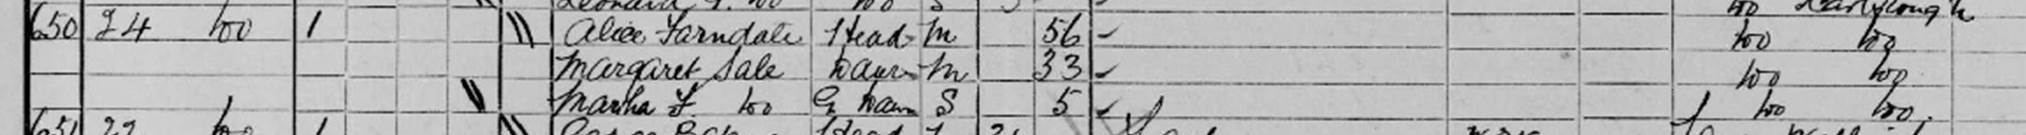 do
650 24 do 1 Alice Farndale Head M 56 do do
Margaret Sale Daur M 33 do do
Martha F do G Daur S 5 do do
651 22 do 1 Head